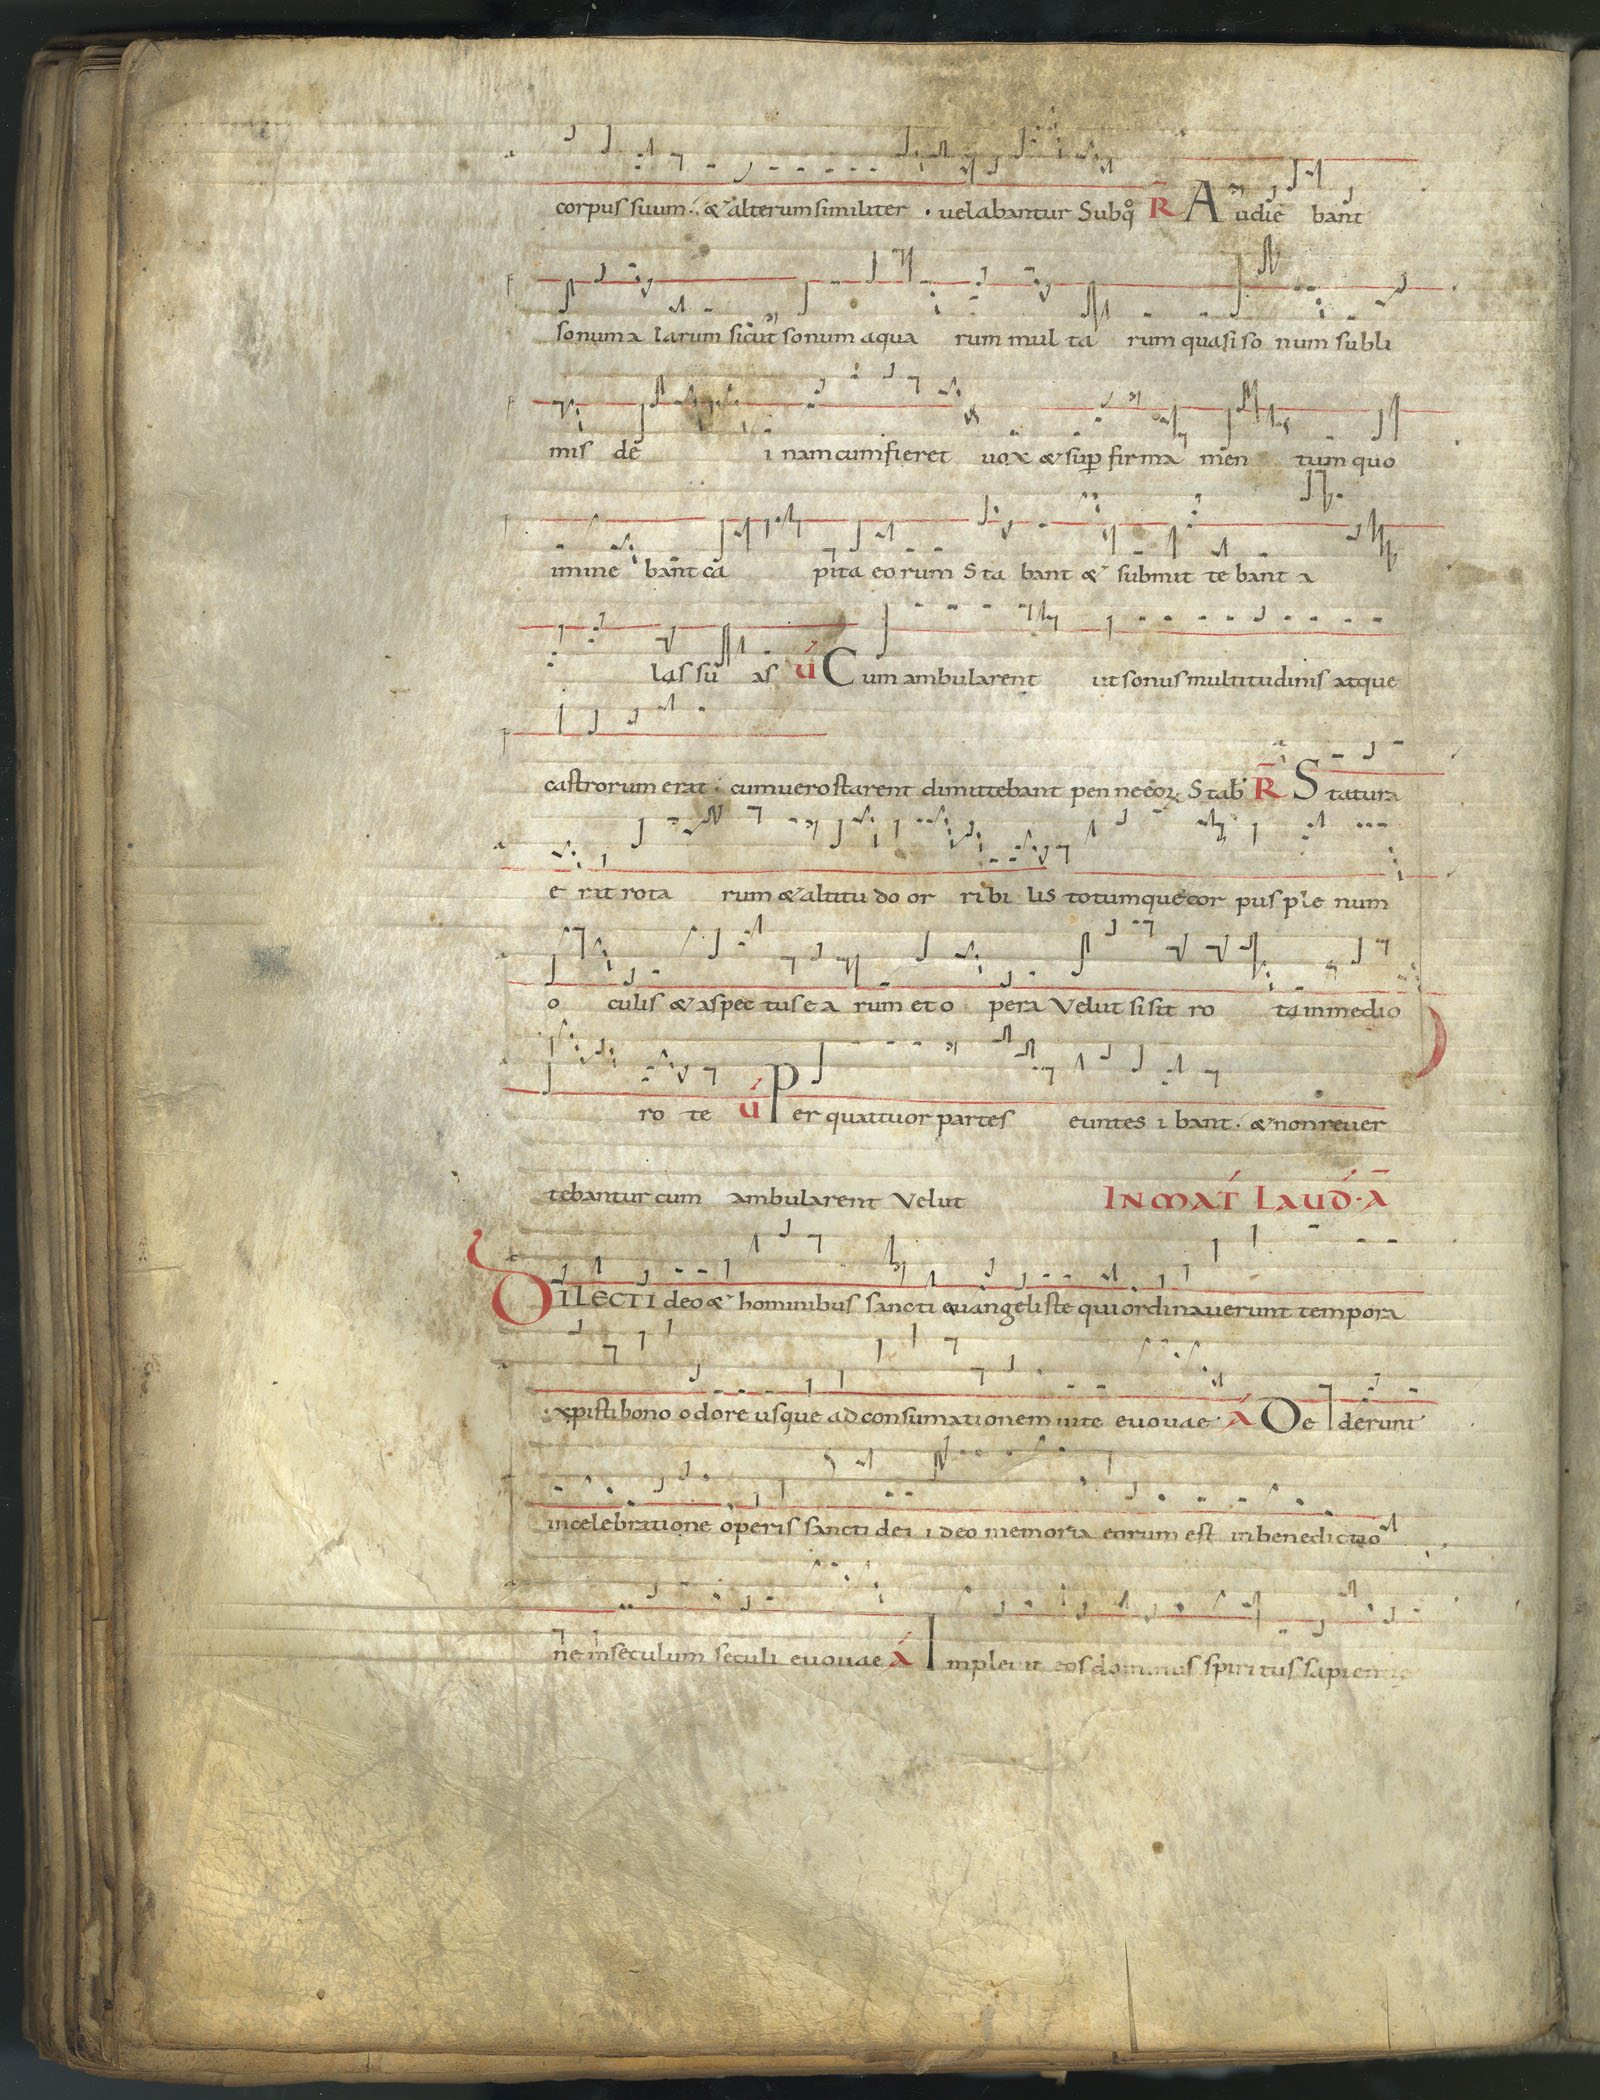 corpus suum · & alterum similiter · uelabantur Subq̊ R̄ Audie bant
sonum a larum sicut sonum aqua rum mul ta rum quasi so num subli
mis de i nam cum fieret uox & sup firma men tum quo
immine bant ca pita eorum Sta bant & submit te bant a
las su as V́ Cum ambularent ut sonus multitudinis atque
castrorum erat · cum uero starent dimittebant penne eoꝝ Stab R̄ Statura
e rat rota rum & altitu do or ribi lis totumque cor pus ple num
o culis & aspec tus e a rum et o pera Velut si sit ro ta in medio
ro te V́ Per quattuor partes euntes i bant · & non reuer
tebantur cum ambularent Velut IN MAT́ LAUD́ · Ā
DILECTI deo & hominibus sancti euangeliste qui ordinauerunt tempora
xpisti bono odore usque ad consumationem uite euouae Á De derunt
in celebratione operis sancti dei ideo memoria eorum est in benedictio
ne in seculum seculi euouae Á Impleuit eos dominus spiritus sapientie